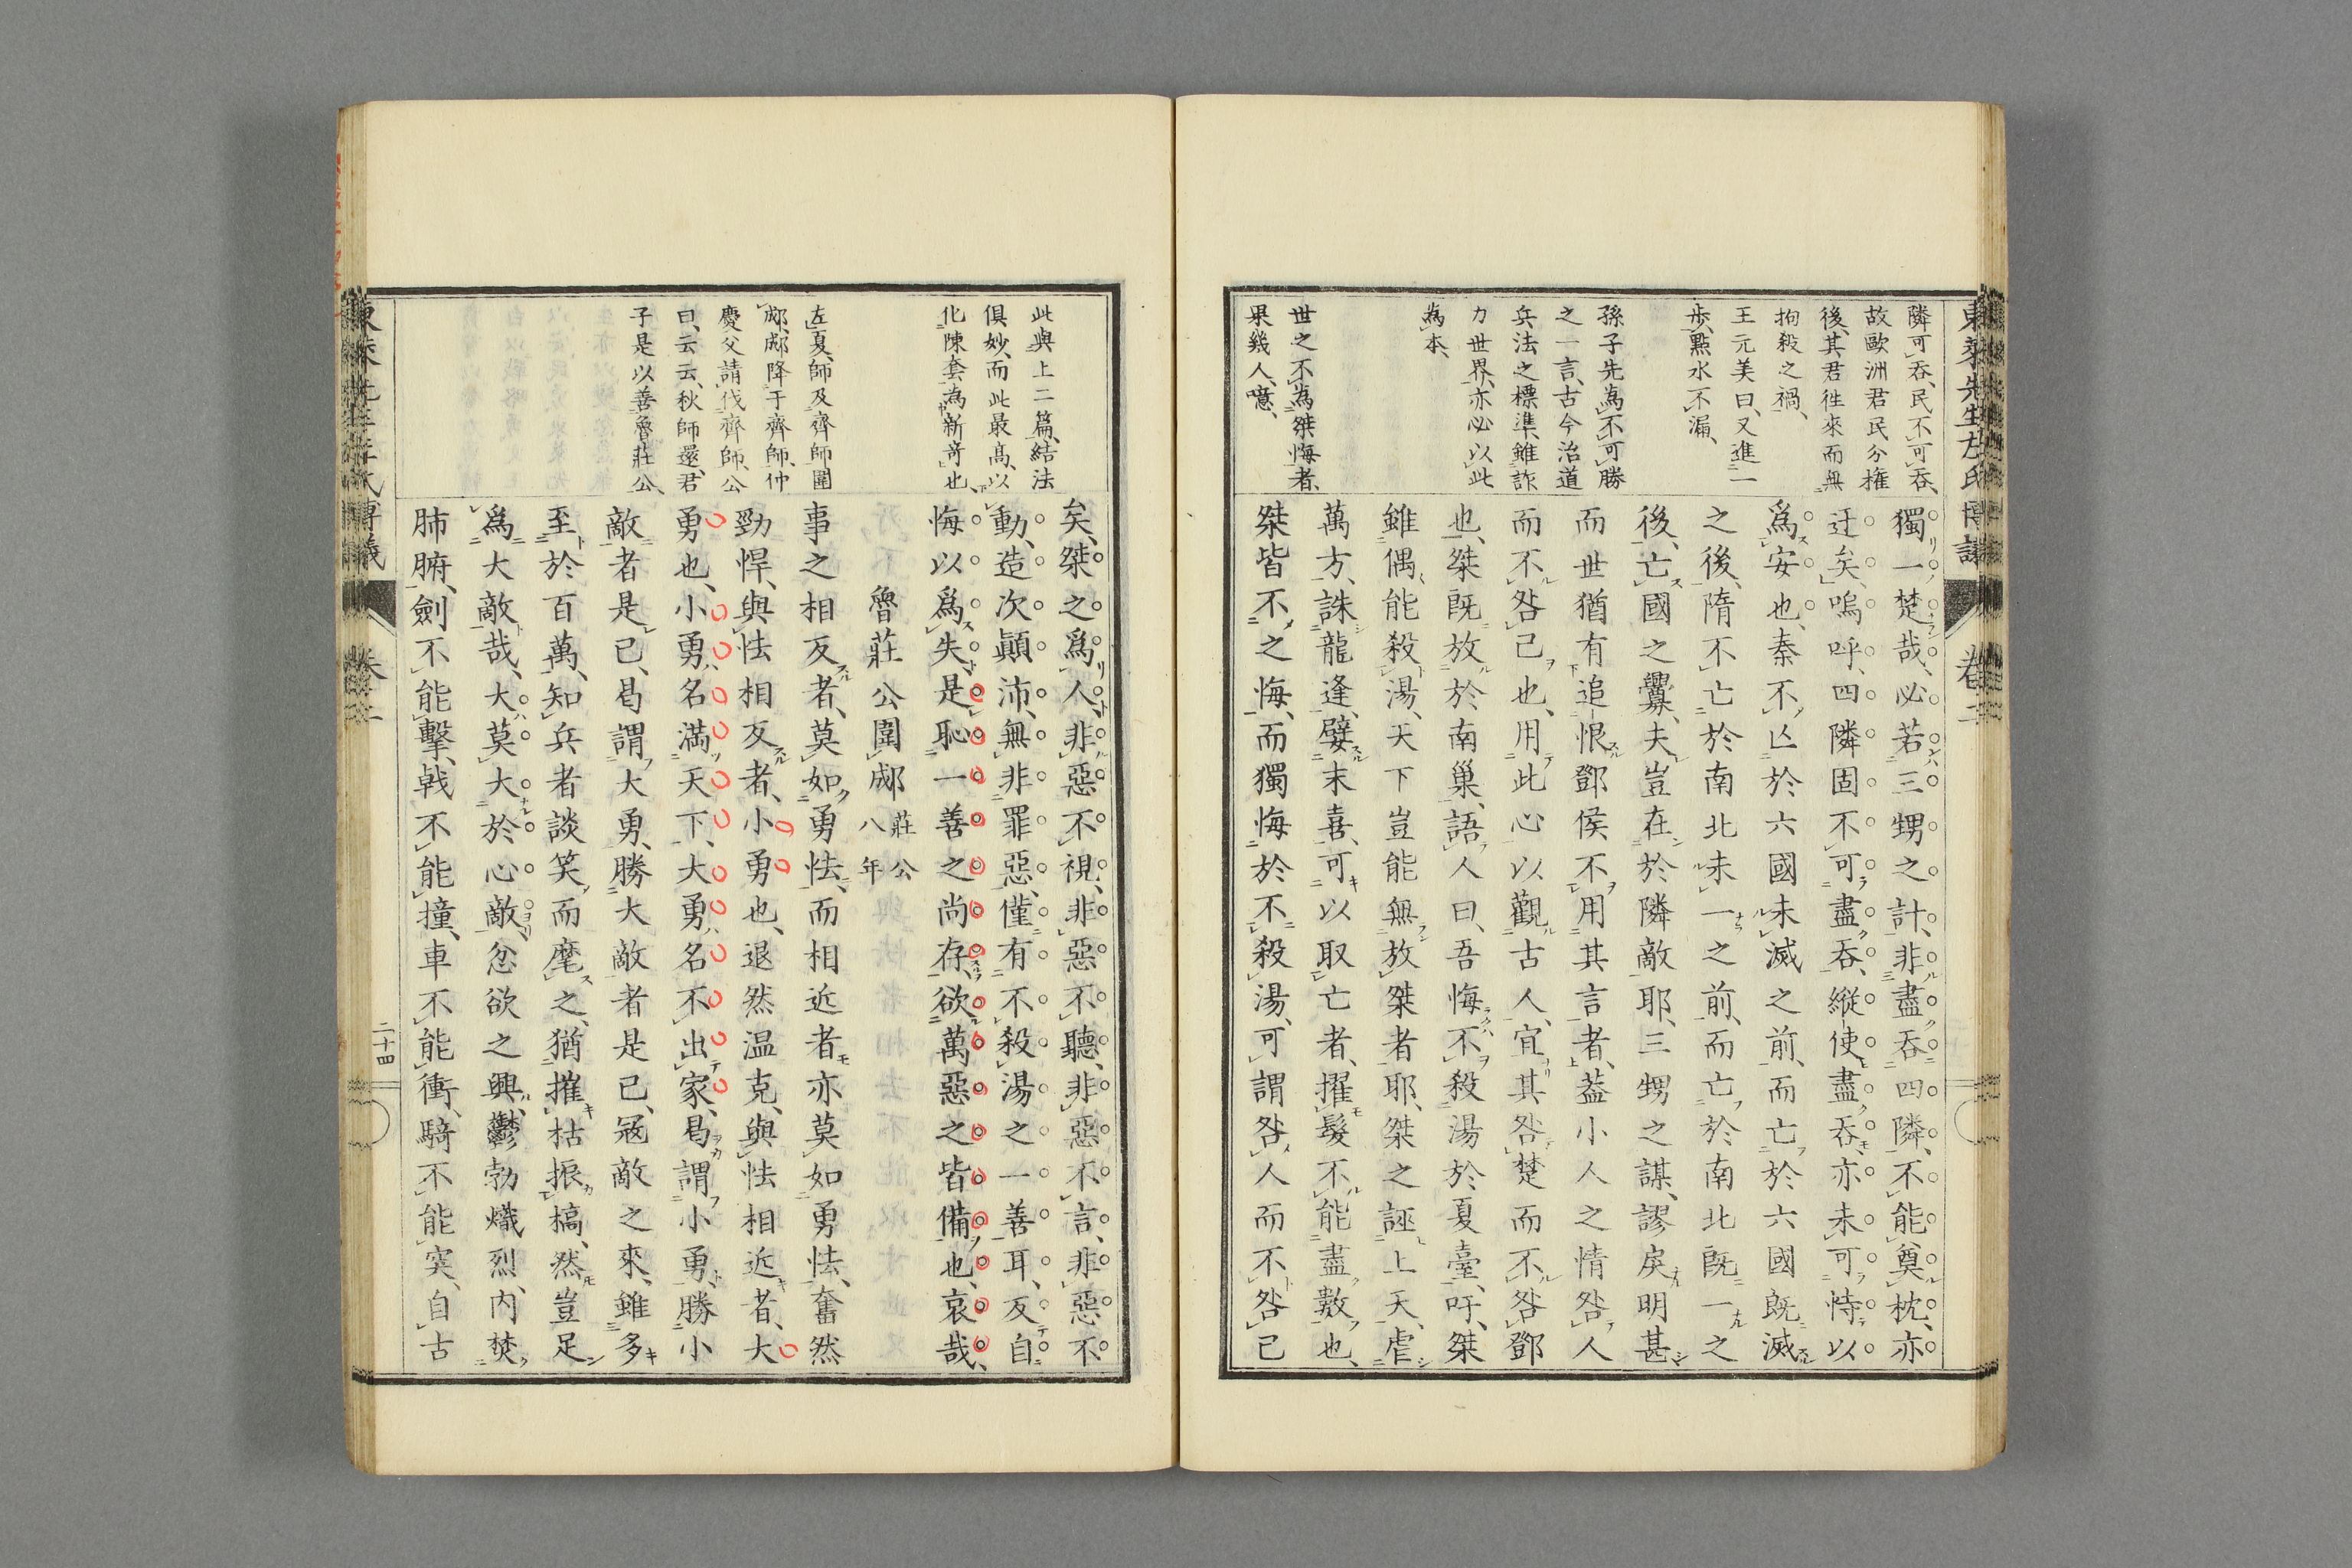 東萊先生左氏博議
卷二
隣可吞、民不可吞、
故歐洲君民分權
後、其君徃來而無
拘殺之禍、
王元美曰、又進一
歩、點水不漏、
孫子先為不可勝
之一言、古今治道
兵法之標準、雖詐
力世界、亦必以此
為本、
世之不為桀悔者、
果幾人、噫、
獨一楚哉、必若三甥之計、非盡吞四隣、不能奠枕、亦
迂矣、嗚呼、四隣固不可盡吞、縱使盡吞、亦未可恃以
爲安也、秦不亾於六國未滅之前、而亡於六國旣滅
之後、隋不亡於南北未一之前、而亡於南北旣一之
後、亡國之釁、夫豈在於隣敵耶、三甥之謀、謬戾明甚
而世猶有追恨鄧侯不用其言者、葢小人之情咎人
而不咎己也、用此心以觀古人、宜其咎楚而不咎鄧
也、桀旣放於南巢、語人曰、吾悔不殺湯於夏臺、吁、桀
雖偶能殺湯、天下豈能無放桀者耶、桀之誣上天、虐
萬方、誅龍逢、嬖末喜、可以取亡者、擢髮不能盡數也、
桀皆不之悔、而獨悔於不殺湯、可謂咎人而不咎己
此與上二篇、結法
俱妙、而此最高、以
化陳套為新竒也、
左夏、師及齊師圍
郕、郕降于齊師、仲
慶父請伐齊師、公
曰、云云、秋師還、君
子是以善魯莊公、
矣、桀之爲人、非惡不視、非惡不聽、非惡不言、非惡不
動、造次顚沛、無非罪惡、僅有不殺湯之一善耳、反自
悔以爲失、是恥一善之尚存、欲萬惡之皆備也、哀哉、
魯莊公圍郕 莊公八年
事之相反者、莫如勇怯、而相近者亦莫如勇怯、奮然
勁悍、與怯相反者、小勇也、退然温克、與怯相近者、大
勇也、小勇名滿天下、大勇名不出家、曷謂小勇、勝小
敵者是已、曷謂大勇、勝大敵者是已、寇敵之來、雖多
至於百萬、知兵者談笑而麾之、猶摧枯振槁、然豈足
爲大敵哉、大莫大於心敵、忿欲之興、鬱勃熾烈、内焚
肺腑、劍不能擊、戟不能撞、車不能衝、騎不能突、自古
東萊先生左氏博議
卷二
二十四